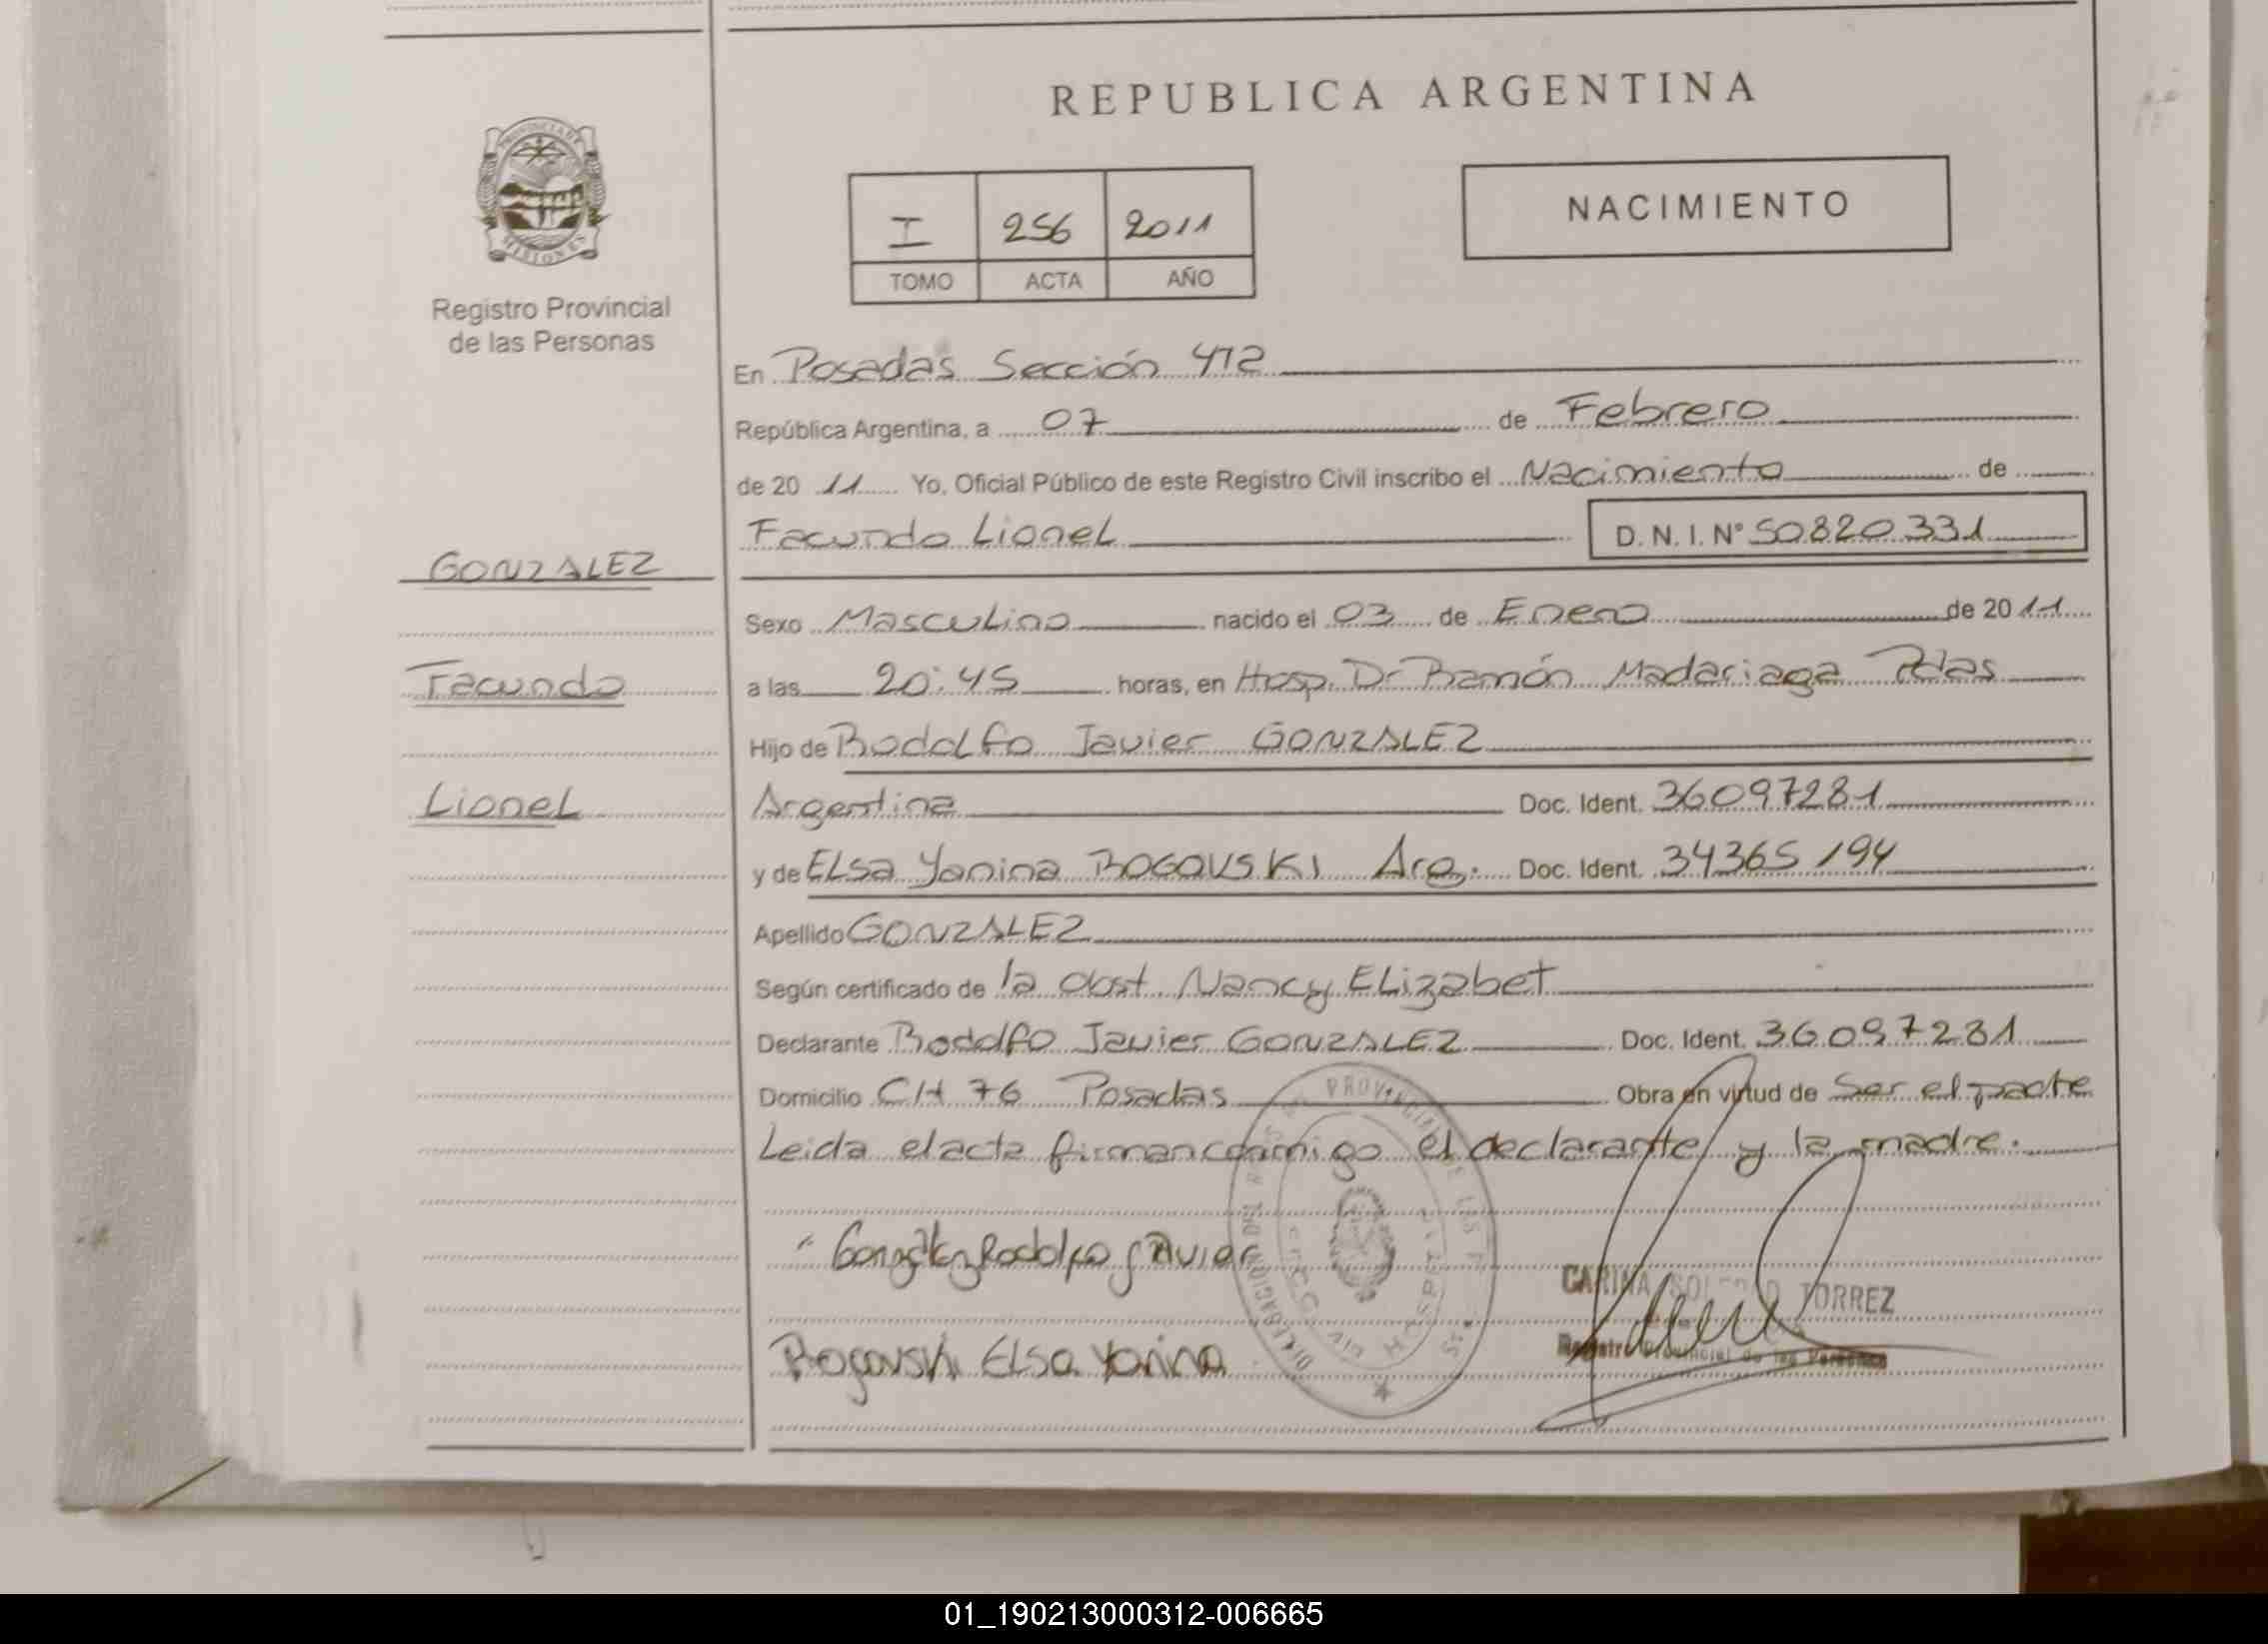 REPUBLICA ARGENTINA
PROVINCIA DE
MISIONES
Registro Provincial
de las Personas
I 256 2011
TOMO ACTA AÑO
NACIMIENTO
En Posadas Sección 412
República Argentina, a 07 de Febrero
de 20 11 Yo, Oficial Público de este Registro Civil inscribo el Nacimiento de
Facundo Lionel D. N. I. N° 50820331
GONZALEZ
Facundo
Lionel
Sexo Masculino nacido el 03 de Enero de 20 11
a las 20:45 horas, en Hosp. Dr Ramón Madariaga Pdas
Hijo de Rodolfo Javier GONZALEZ
Argentina Doc. Ident. 36097281
y de Elsa Yanina ROGOVSKI Arg. Doc. Ident. 34365194
Apellido GONZALEZ
Según certificado de la Obst Nancy Elizabet
Declarante Rodolfo Javier GONZALEZ Doc. Ident. 36097281
Domicilio CH 76 Posadas Obra en virtud de Ser el padre
Leida el acta firman conmigo el declarante y la madre.
Gonzalez Rodolfo Javier
CARINA SOLEDAD TORREZ
Registro Provincial de las Personas
Rogovski Elsa Yanina
01_190213000312-006665